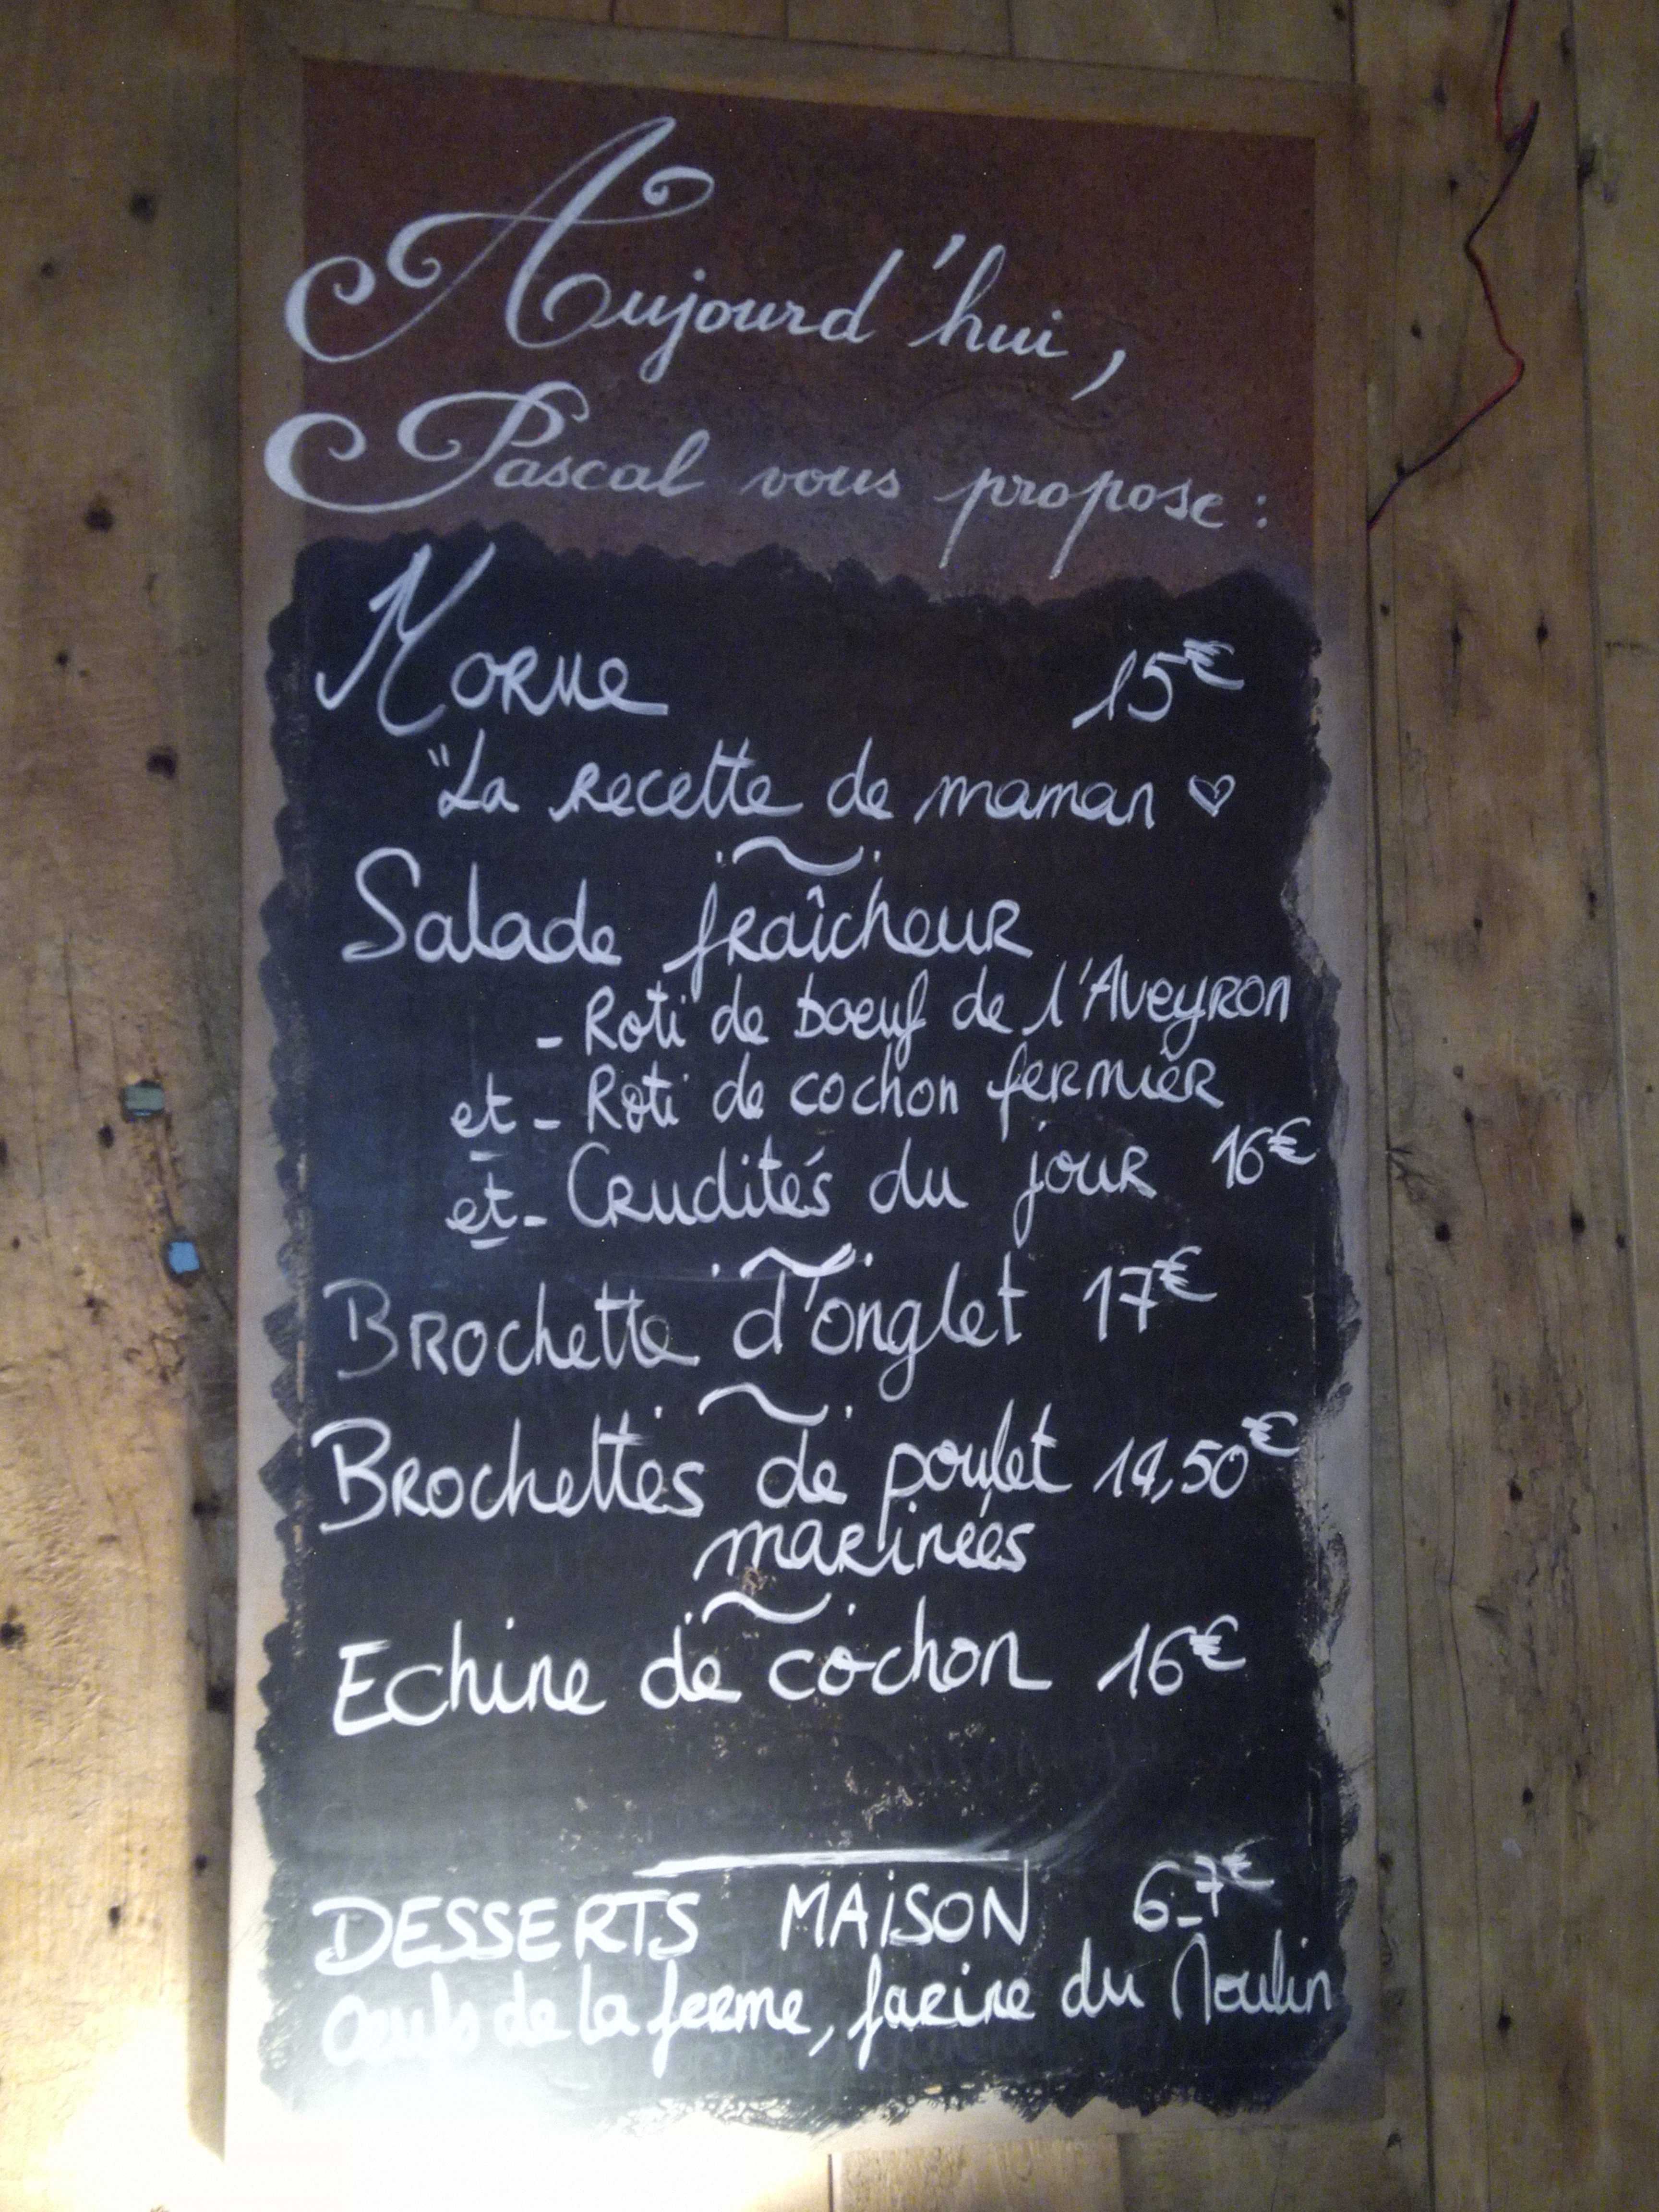 Aujourd'hui,
Pascal vous propose :
Morue 15€
"La recette de maman ♡
Salade fraîcheur
- Roti de boeuf de l'Aveyron
et - Roti de cochon fermier
et - Crudités du jour 16€
Brochette d'onglet 17€
Brochettes de poulet 14,50€
marinées
Echine de cochon 16€
DESSERTS MAiSON 6-7€
Œufs de la ferme, farine du Moulin